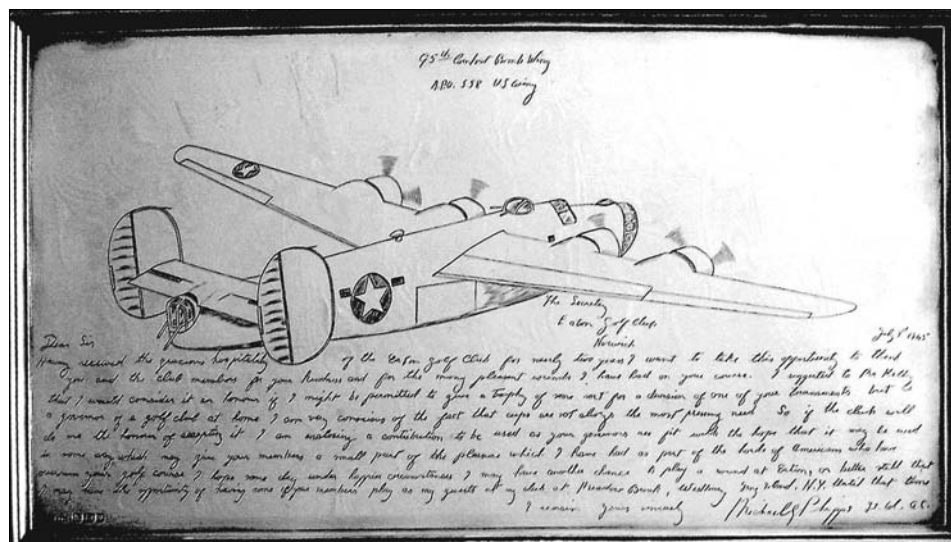 95th Combat Bomb Wing
A.P.O. 558 US Army
The Secretary
Eaton Golf Club
Norwich
July 8 1945
Dear Sir
Having received the gracious hospitality of the Eaton Golf Club for nearly two years I want to take this opportunity to thank
you and the club members for your kindness and for the many pleasant rounds I have had on your course. I suggested to
that I would consider it an honour if I might be permitted to give a trophy of some sort for a division of one of your tournaments but as
a governor of a golf club at home I am very conscious of the fact that cups are not always the most pressing need So if the club will
do me the honour of accepting it I am enclosing a contribution to be used as your governors see fit with the hope that it may be used
in some way which may give your members a small part of the pleasure which I have had as part of the horde of Americans who have
your golf course I hope some day under happier circumstances I may have another chance to play a round at Eaton, or better still that
I may have the opportunity of having some of your members play as my guests at my club at Meadow Brook, Westbury Long Island, N.Y. Until that time
I remain yours sincerely Michael G Phipps Lt. Col. A.C.